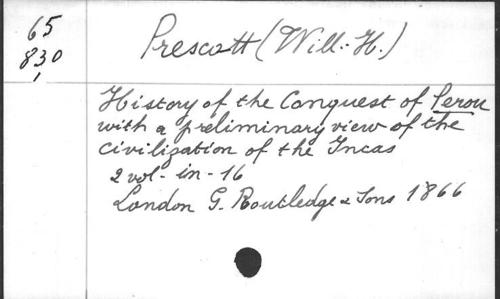 65
830
Prescott (Will.-H.)
History of the Conquest of Perou
with a preliminary view of the
civilization of the Incas
2 vol - in - 16
London G. Routledge & Sons 1866